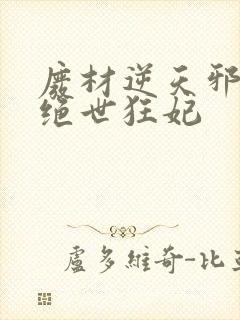 廢材逆天邪
絕世狂妃
盧多維奇-比亞